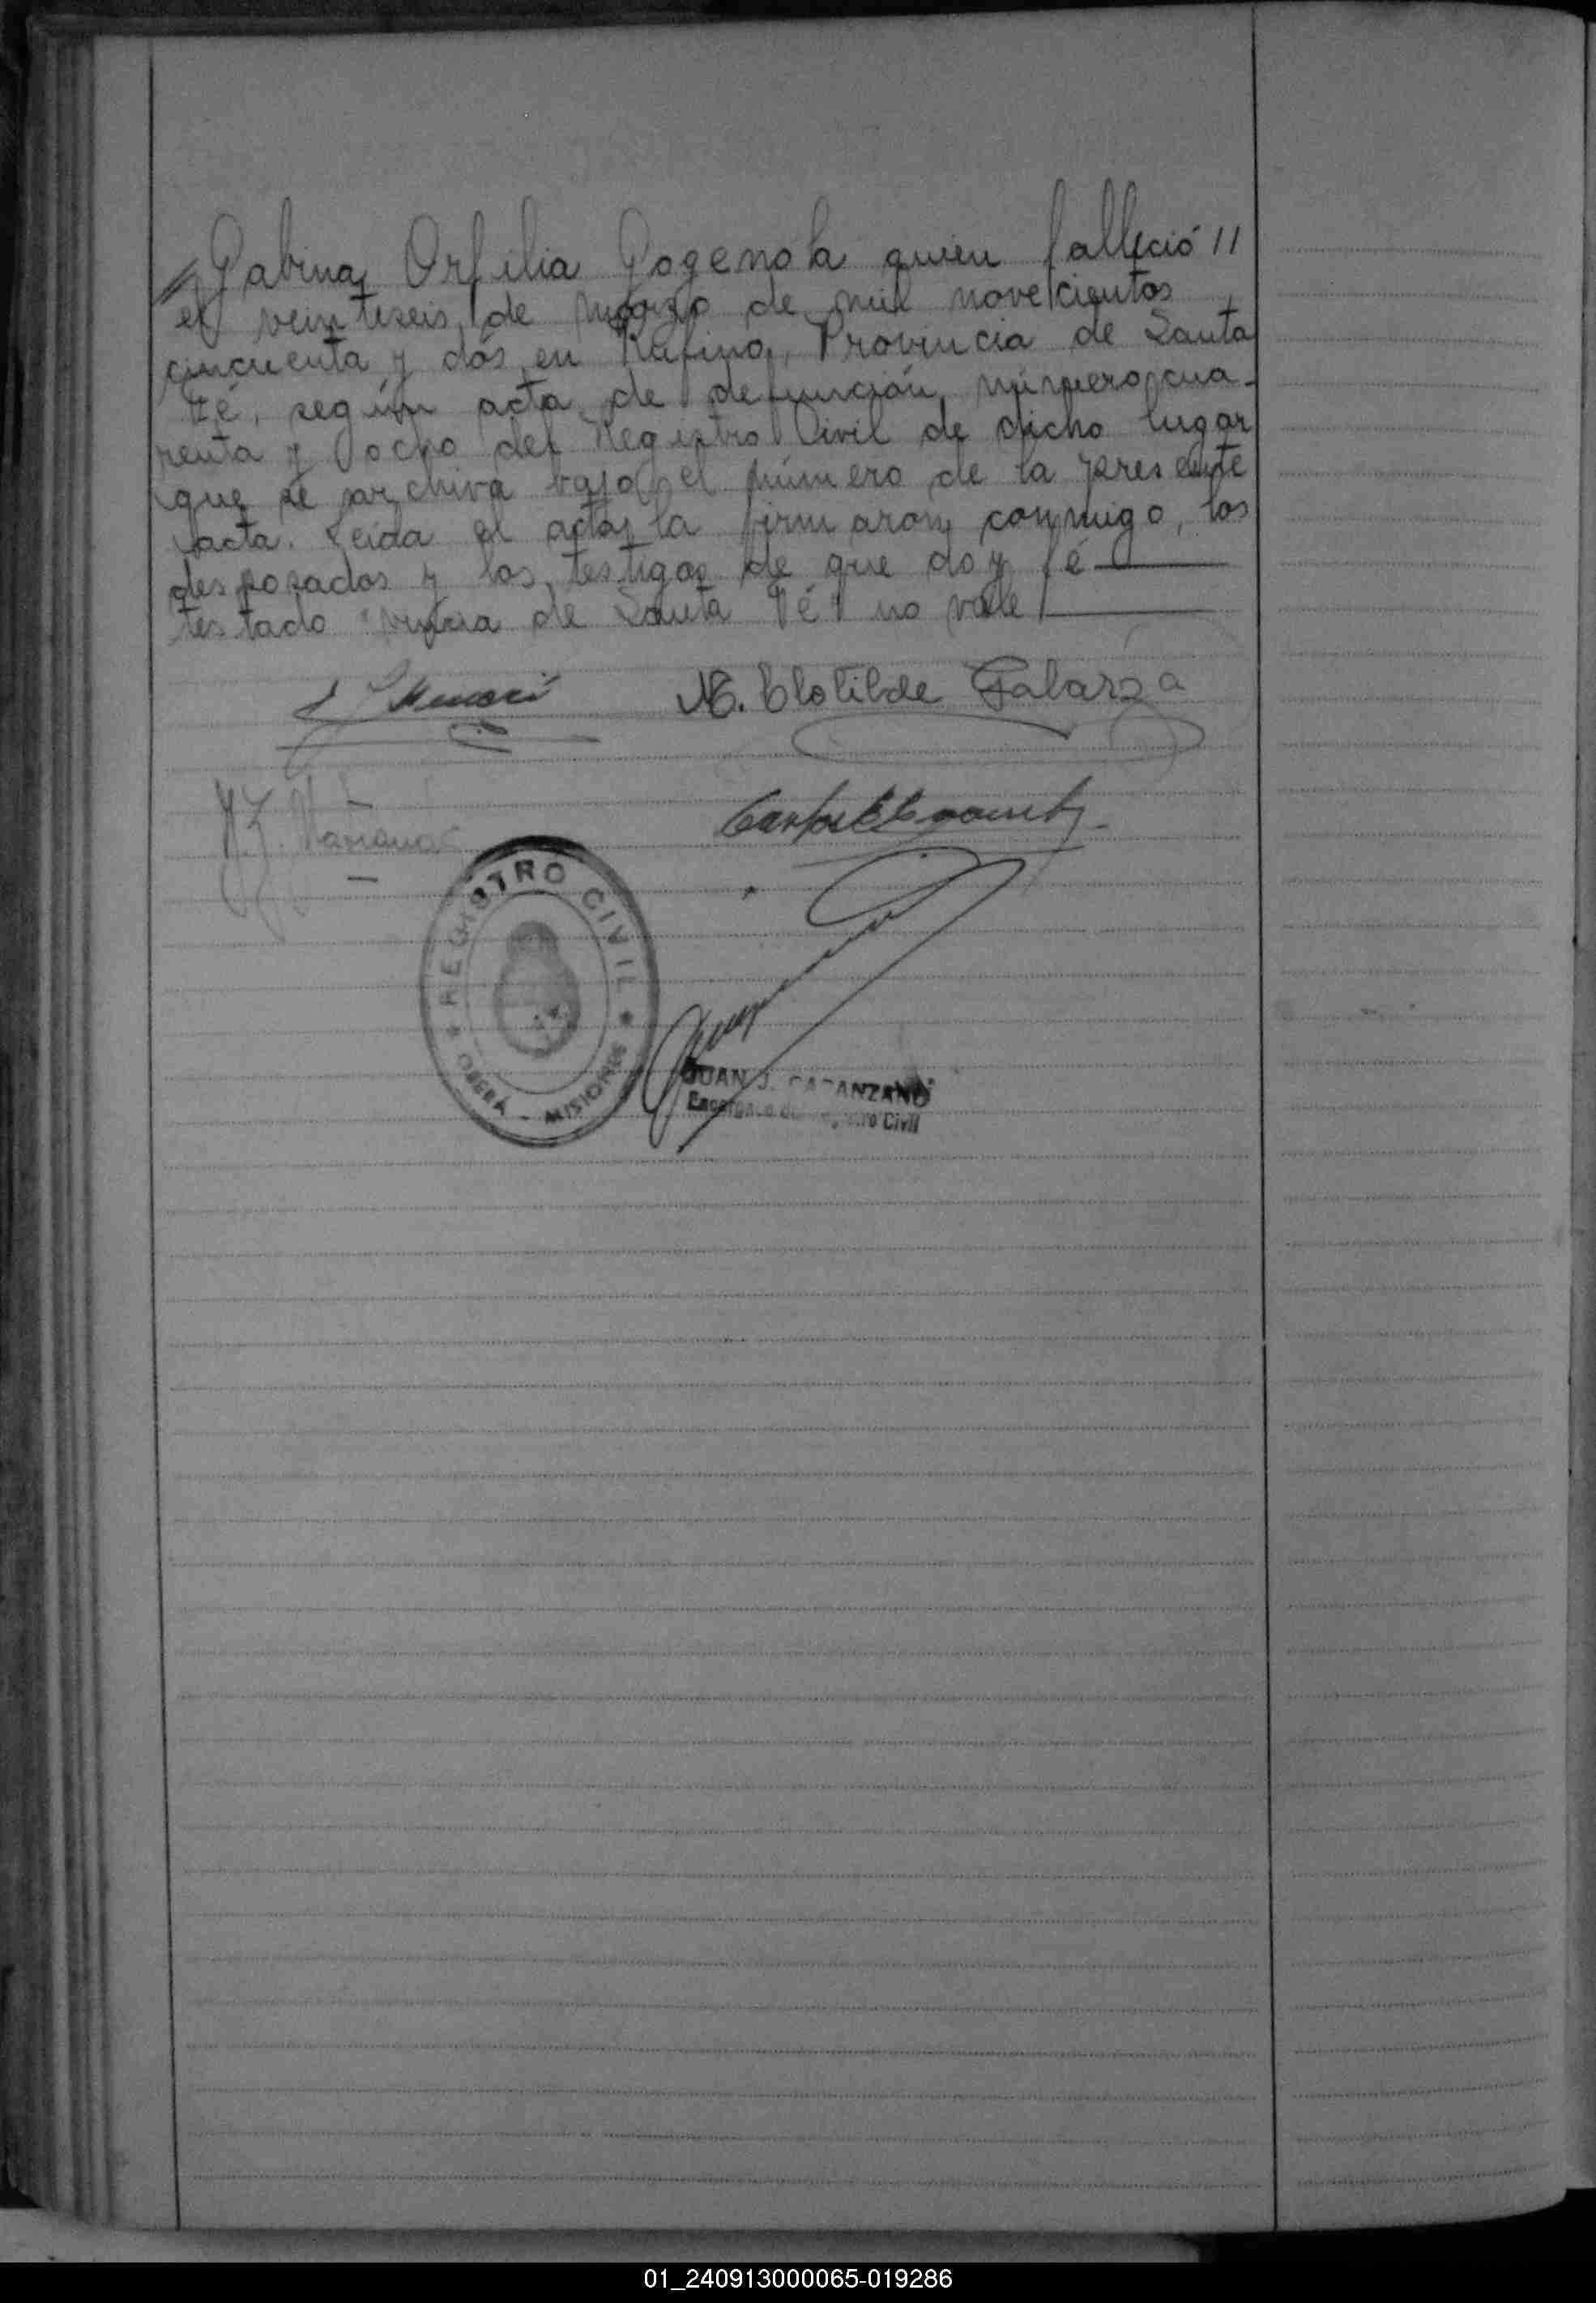 Gabina Orfilia Gogenola quien falleció //
el veintiseis de marzo de mil novecientos
cincuenta y dós en Rufino, Provincia de Santa
Fé, según acta de defunción número cua-
renta y ocho del Registro Civil de dicho lugar
que se archiva bajo el número de la presente
acta. Leida el acta, la firmaron conmigo, los
desposados y los testigos de que doy fé
testado de Santa Fé" no vale
M. Clotilde Galarza
REGISTRO CIVIL
OBERÁ - MISIONES
JUAN J.
Registro Civil
01_240913000065-019286